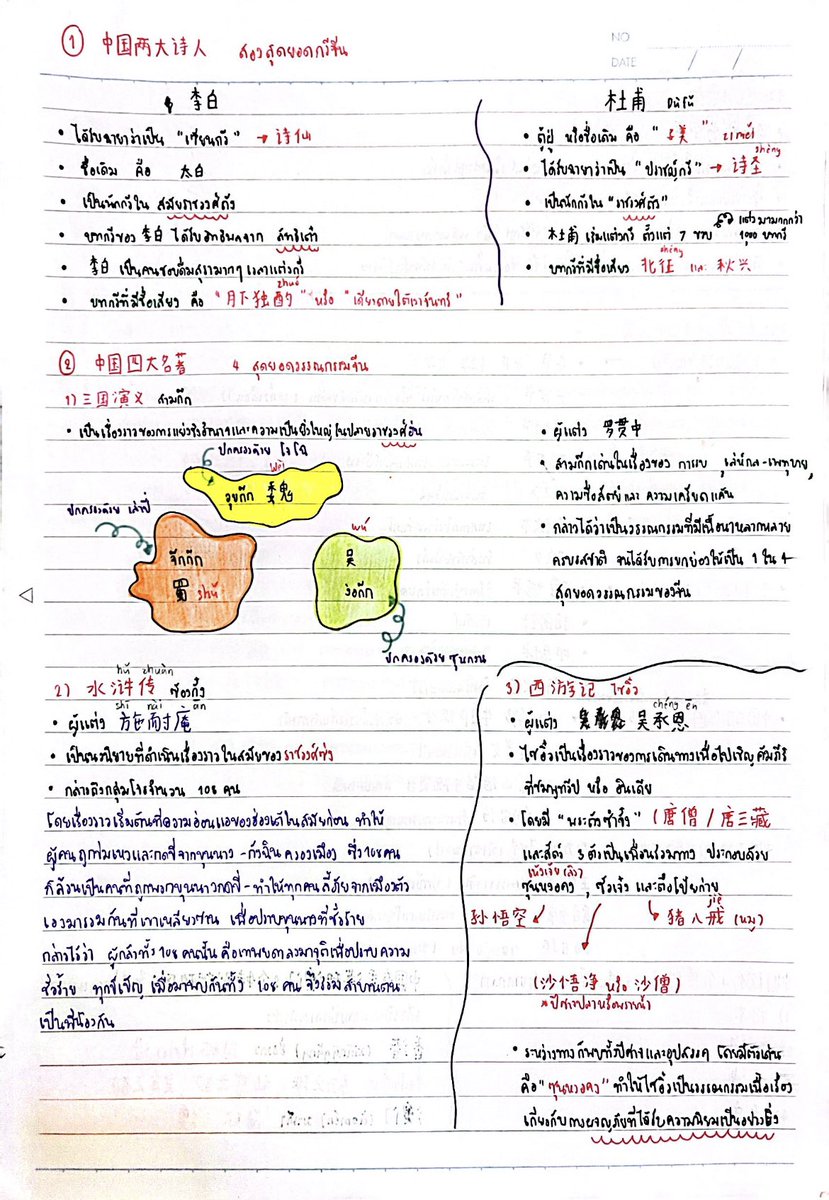 ① 中国两大诗人 สองสุดยอดกวีจีน
NO
DATE / /
李白
• ได้รับฉายาว่าเป็น "เซียนกวี" → 诗仙
• ชื่อเดิม คือ 太白
• เป็นนักกวีใน สมัยราชวงศ์ถัง
• บทกวีของ 李白 ได้รับอิทธิพลจาก ลัทธิเต๋า
• 李白 เป็นคนชอบดื่มสุรามากๆ เวลาแต่งกวี
zhuó
• บทกวีที่มีชื่อเสียง คือ "月下独酌" หรือ "เดียวดายใต้เงาจันทร์"
杜甫
• ตู้ฝู่ หรือชื่อเดิม คือ "子美" ziměi
shèng
• ได้รับฉายาว่าเป็น "ปราชญ์กวี" → 诗圣
• เป็นนักกวีใน "ราชวงศ์ถัง"
• 杜甫 เริ่มแต่งกวี ตั้งแต่ 7 ขวบ แต่งมามากกว่า 1,000 บทกวี
zhēng
• บทกวีที่มีชื่อเสียง 北征 และ 秋兴
② 中国四大名著 4 สุดยอดวรรณกรรมจีน
1) 三国演义 สามก๊ก
• เป็นเรื่องราวของการแย่งชิงอำนาจและความเป็นยิ่งใหญ่ในปลายราชวงศ์ฮั่น
ปกครองด้วย โจโฉ
wèi
วุยก๊ก 魏
ปกครองด้วย เล่าปี่
จ๊กก๊ก
蜀 shǔ
wú
吴
ง่อก๊ก
ปกครองด้วย ซุนกวน
• ผู้แต่ง 罗贯中
• สามก๊กเด่นในเรื่องของ การรบ เล่ห์กล-เพทุบาย,
ความซื่อสัตย์และ ความเครียดแค้น
• กล่าวได้ว่าเป็นวรรณกรรมที่มีเนื้อหาหลากหลาย
ครบรสชาติ จนได้รับการยกย่องให้เป็น 1 ใน 4
สุดยอดวรรณกรรมของจีน
hǔ zhuàn
2) 水浒传 ซ้องกั๋ง
shī nài ān
• ผู้แต่ง 施耐庵
• เป็นนวนิยายที่ดำเนินเรื่องราวในสมัยของราชวงศ์ซ่ง
• กล่าวถึงกลุ่มโจรจำนวน 108 คน
โดยเรื่องราวเริ่มต้นที่ความอ่อนแอของฮ่องเต้ในสมัยก่อน ทำให้
ผู้คนถูกข่มเหงและกดขี่จากขุนนาง-กังฉินครองเมือง ซึ่ง 108 คน
ก็ล้วนเป็นคนที่ถูกพวกขุนนางกดขี่-ทำให้ทุกคนลี้ภัยจากเมืองตัว
เองมารวมกันที่เขาเหลียงซาน เพื่อปราบขุนนางที่ชั่วร้าย
กล่าวไว้ว่า ผู้กล้าทั้ง 108 คนนั้น คือเทพยดาลงมาจุติเพื่อปราบความ
ชั่วร้าย ทุกชีเชิญ เมื่อมาพบกันทั้ง 108 คน จึงร่วมสาบานตน
เป็นพี่น้องกัน
3) 西游记 ไซอิ๋ว
chéng ēn
• ผู้แต่ง 吴承恩
• ไซอิ๋วเป็นเรื่องราวของการเดินทางเพื่อไปเชิญคัมภีร์
ที่ชมพูทวีป หรือ อินเดีย
• โดยมี "พระถังซำจั๋ง" (唐僧 / 唐三藏
และสัตว์ 3 ตัวเป็นเพื่อนร่วมทาง ประกอบด้วย
เห้งเจีย (ลิง)
ซุนหงอคง, ซัวเจ๋ง และตือโป๊ยก่าย
jiè
孙悟空
猪八戒 (หมู)
(沙悟净 หรือ 沙僧)
* ปีศาจปลาหรือพรายน้ำ
• ระหว่างทางก็พบทั้งปีศาจและอุปสรรค โดยมีตัวเด่น
คือ "ซุนหงอคง" ทำให้ไซอิ๋วเป็นวรรณกรรมเนื้อเรื่อง
เกี่ยวกับการผจญภัยที่ได้รับความนิยมเป็นอย่างยิ่ง